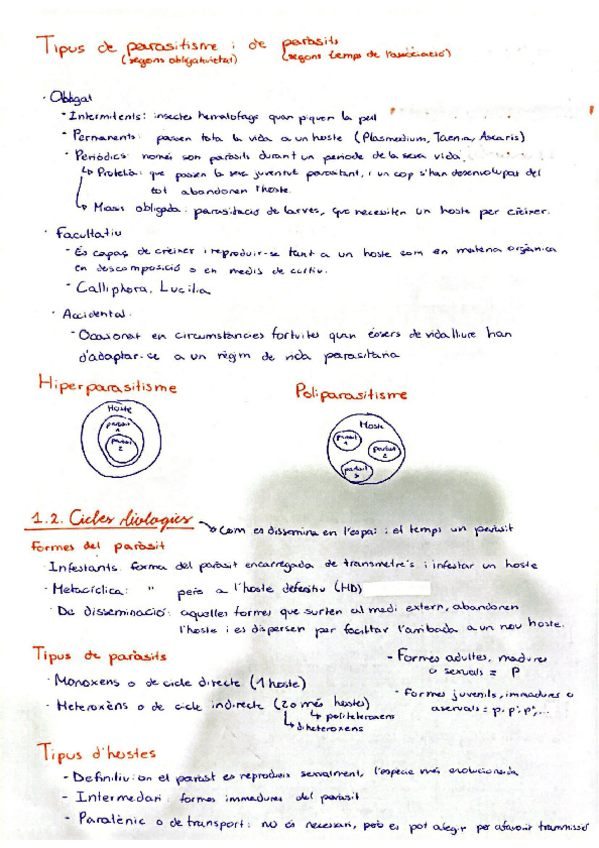 Tipus de parasitisme i de paràsits
(segons obligatorietat) (segons temps de l'associació)
· Obligat
- Intermitents: insectes hematòfags quan piquen la pell
- Permanents: passen tota la vida a un hoste (Plasmodium, Taenia, Ascaris)
- Periòdics: només son paràsits durant un periode de la seva vida.
↳ Protelis: que passen la seva joventut parasitant, i un cop s'han desenvolupat del
tot abandonen l'hoste.
↳ Miasis obligada: parasitació de larves, que necessiten un hoste per créixer.
· Facultatiu
- És capaç de créixer i reproduir-se tant a un hoste com en matèria orgànica
en descomposició o en medis de cultiu.
- Calliphora, Lucilia
· Accidental.
- Ocasionat en circumstàncies fortuites quan éssers de vida lliure han
d'adaptar-se a un règim de vida parasitaria
Hiperparasitisme Poliparasitisme
Hoste
paràsit
1
paràsit
2
Hoste
paràsit
1
paràsit
2
paràsit
3
1.2. Cicles biològics → Com es dissemina en l'espai i el temps un paràsit
Formes del paràsit
· Infestants: forma del paràsit encarregada de transmetre's i infestar un hoste
· Metacíclica: " però a l'hoste definitiu (HD)
· De disseminació: aquelles formes que surten al medi extern, abandonen
l'hoste i es dispersen per facilitar l'arribada a un nou hoste.
Tipus de paràsits
· Monoxens o de cicle directe (1 hoste)
· Heteroxèns o de cicle indirecte (2 o més hostes)
↳ politeteroxens
↳ diheteroxens
- Formes adultes, madures
o sexuals = P
- Formes juvenils, immadures o
asexuals = p, p', p'',...
Tipus d'hostes
- Definitiu: on el paràsit es reprodueix sexualment, l'espècie més evolucionada
- Intermediari: formes immadures del paràsit
- Paratènic o de transport: no és necessari, però es pot afegir per afavorir transmissió